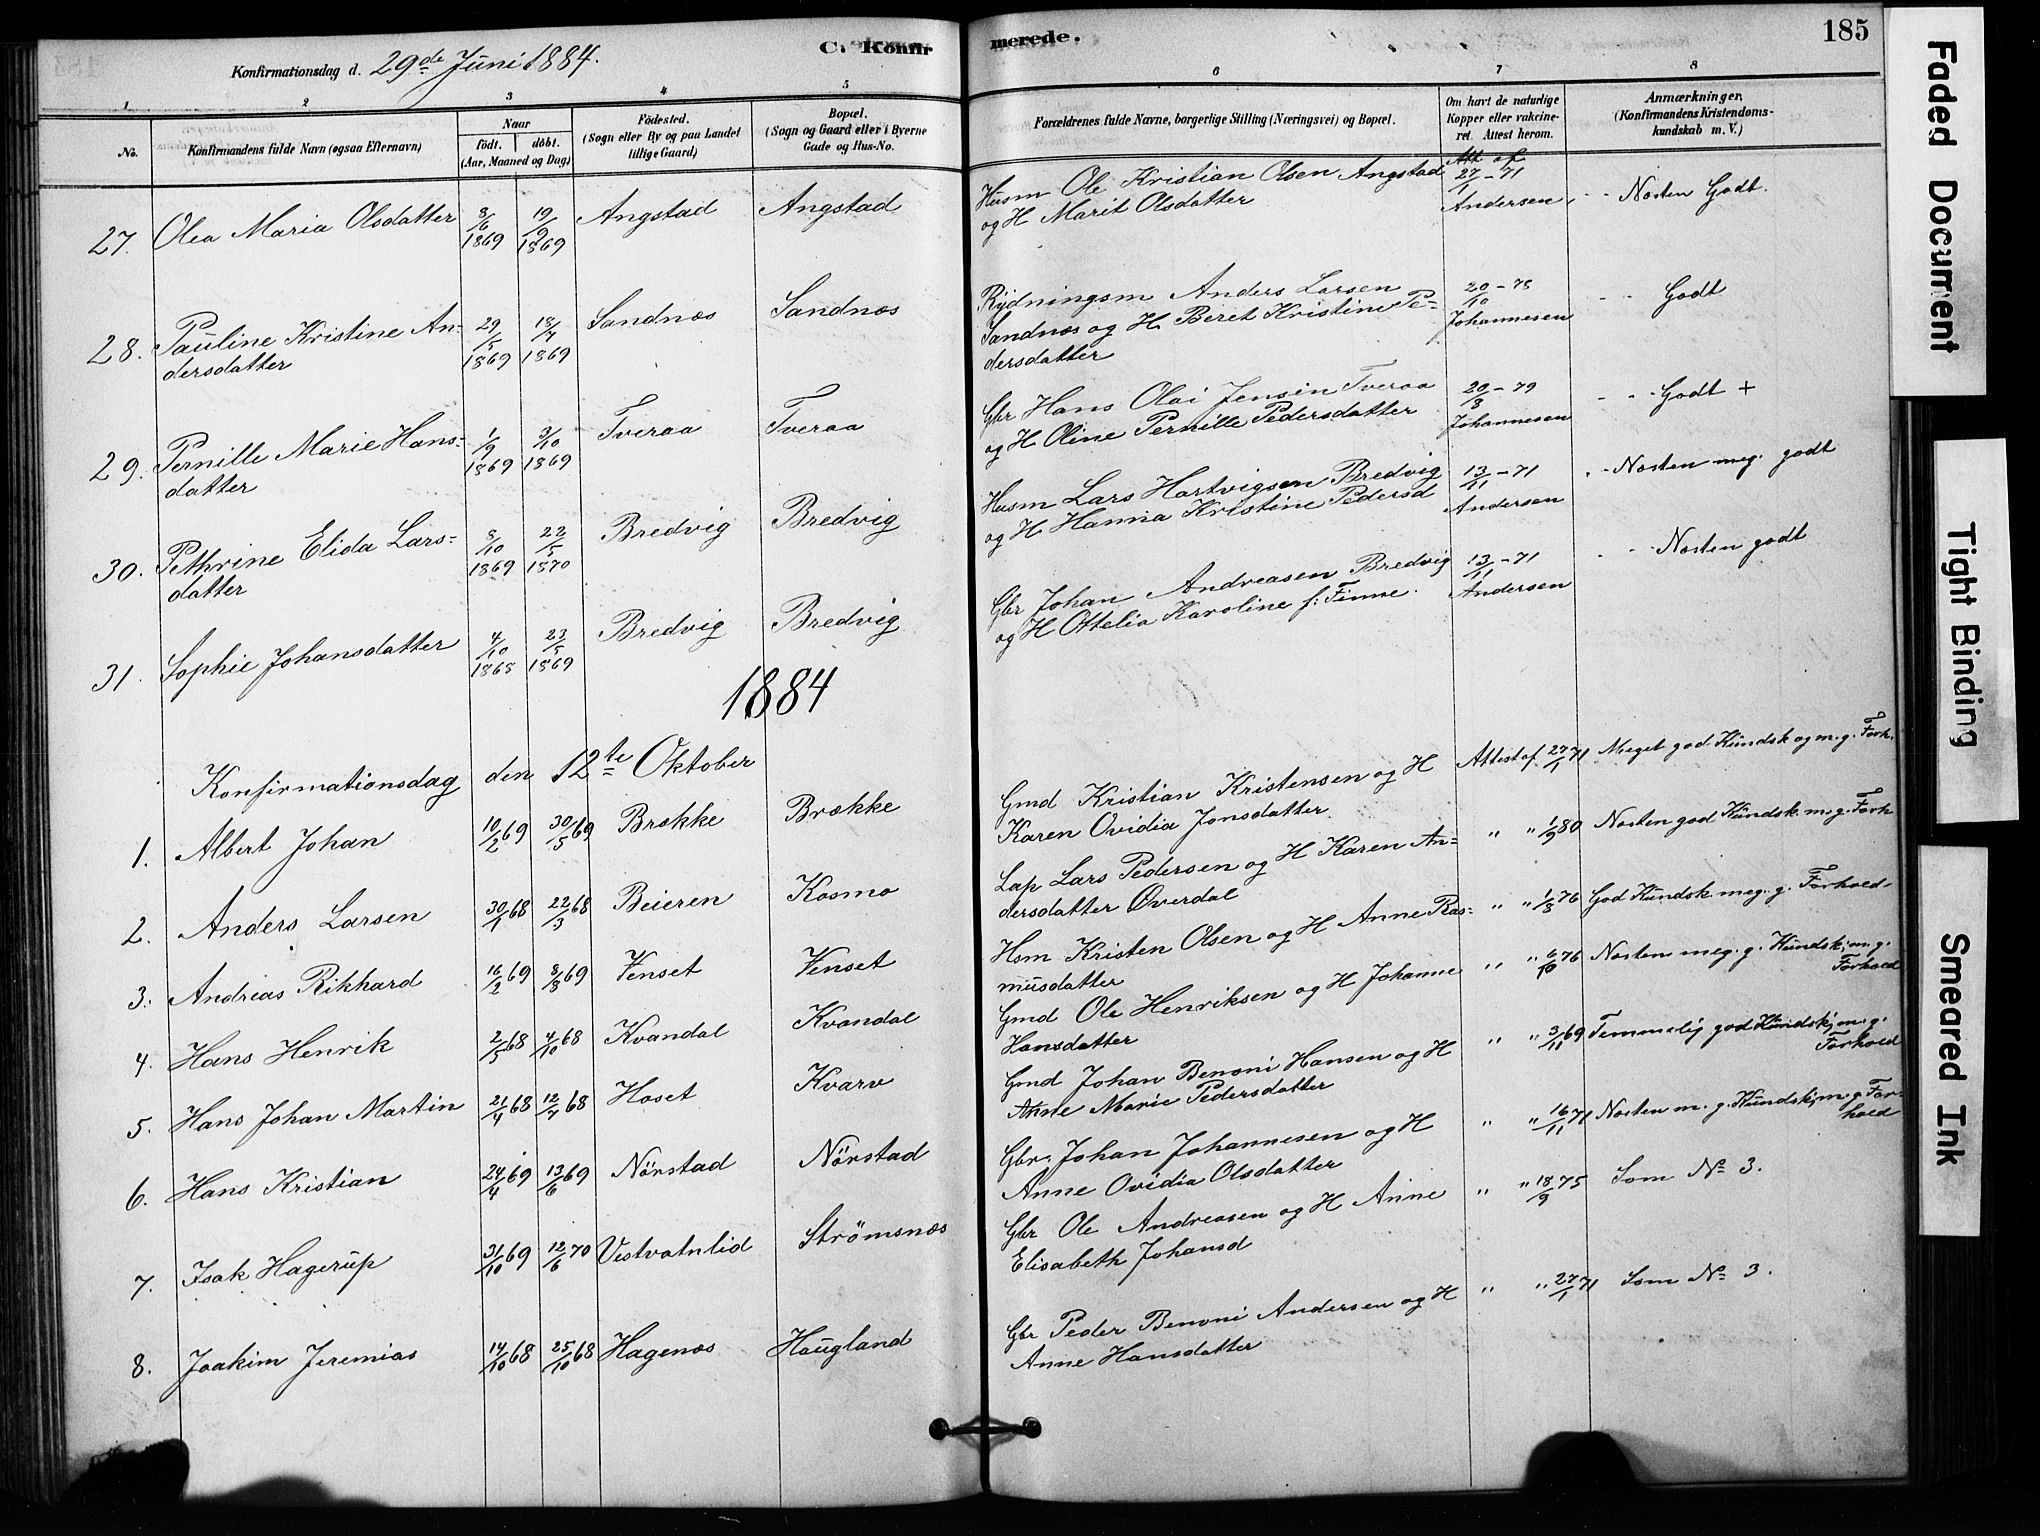 Konfirmationsdag d. 29de Juni 1884.
C. Konfir
merede.
185
1 2 3 4 5 6 7 8
No.
Konfirmandens fulde Navn (ogsaa Efternavn)
Naar
födt. döbt.
(Aar, Maaned og Dag)
Födested.
(Sogn eller By og paa Landet
tillige Gaard)
Bopæl.
(Sogn og Gaard eller i Byerne
Gade og Hus-No.
Forældrenes fulde Navne, borgerlige Stilling (Næringsvei) og Bopæl.
Om havt de naturlige
Kopper eller vakcine-
ret. Attest herom.
Anmærkninger.
(Konfirmandens Kristendoms-
kundskab m. V.)
27. Olea Maria Olsdatter 8/6 1869 19/9 1869 Angstad Angstad Husm Ole Kristian Olsen Angstad Att. af 27/1 - 71 " Næsten Godt.
og H Marit Olsdatter Andersen
28. Pauline Kristine An- 29/5 1869 18/7 1869 Sandnæs Sandnæs Rydningsm Anders Larsen 20/10 - 78 " Godt
dersdatter Sandnæs og H. Beret Kristine Pe- Johannesen
dersdatter
29. Pernille Marie Hans- 1/9 1869 3/10 1869 Tveraa Tveraa Gbr Hans Olai Jensen Tveraa 20/8 - 79 " Godt +
datter og H Oline Pernille Pedersdatter Johannesen
30. Pethrine Elida Lars- 8/10 1869 22/5 1870 Bredvig Bredvig Husm Lars Hartvigsen Bredvig 13/11 - 71 " Næsten meg. godt
datter og H Hanna Kristine Pedersd Andersen
31. Sophie Johansdatter 4/10 1868 23/5 1869 Bredvig Bredvig Gbr Johan Andreasen Bredvig 13/11 - 71 " Næsten godt
og H Ottelia Karoline f: Finne. Andersen
1884
Konfirmationsdag den 12te Oktober
1. Albert Johan 10/2 69 30/5 69 Brække Brække Gmd Kristian Kristensen og H Attest af 27/1 71 Meget god Kundsk og m. g. Forh.
Karen Ovidia Jonsdatter
2. Anders Larsen 30/1 68 22/3 68 Beieren Kosmo Lap Lars Pedersen og H Karen An- " " 1/9 80 Næsten god Kundsk. m. g. Forh
dersdatter Överdal
3. Andreas Rikhard 16/2 69 8/8 69 Venset Venset Hsm Kristen Olsen og H Anne Ras- " " 1/8 76 God Kundsk meg. g. Forhold
musdatter
4. Hans Henrik 2/5 68 4/10 68 Kvandal Kvandal Gmd Ole Henriksen og H Johanne " " 6/10 76 Næsten meg. g. Kundsk; m. g.
Hansdatter Forhold
5. Hans Johan Martin 21/4 68 12/7 68 Hoset Kvarv Gmd Johan Benoni Hansen og H " " 3/11 69 Temmelig god Kundsk; m. g.
Anne Marie Pedersdatter Forhold
6. Hans Kristian 24/4 69 13/6 69 Nörstad Nörstad Gbr. Johan Johannesen og H " " 16/11 71 Næsten m. g. Kundsk; m. g For-
Anne Ovidia Olsdatter hold
7. Isak Hagerup 31/10 69 12/6 70 Vestvatnlid Strömsnæs Gbr Ole Andreasen og H Anne " " 18/9 75 Som No 3.
Elisabeth Johansd
8. Joakim Jeremias 14/10 68 25/10 68 Hagenæs Haugland Gbr Peder Benoni Andersen og H " " 27/1 71 Som No 3.
Anne Hansdatter
Faded Document
Tight Binding
Smeared Ink